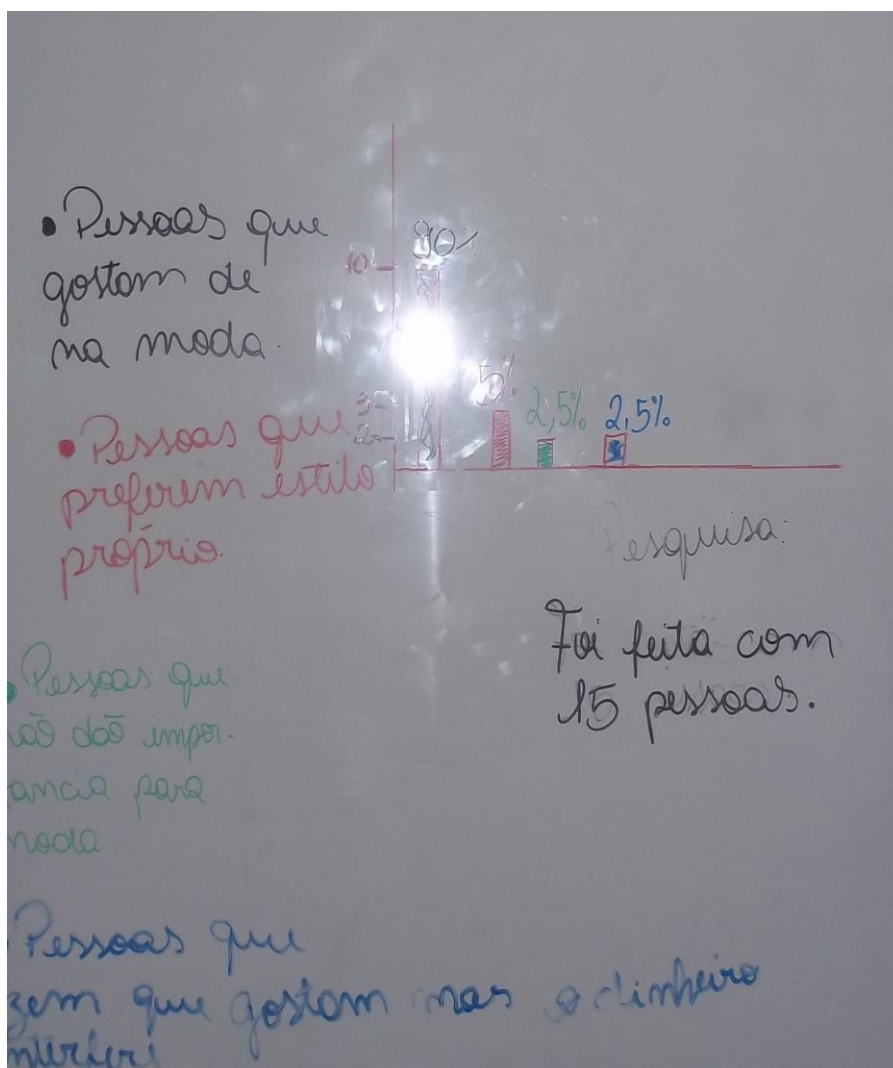 • Pessoas que
gostam de
na moda.
• Pessoas que
preferem estilo
próprio.
• Pessoas que
não dão impor-
ancia para
moda
Pessoas que
zem que gostam mas o dinheiro
90%
10
3
2
5%
2,5%
2,5%
Pesquisa:
Foi feita com
15 pessoas.